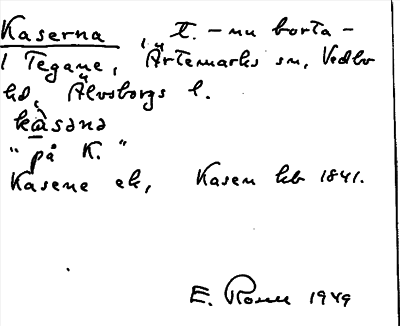 Kaserna, t. - nu borta -
i Tegane, Ärtemarks sn, Vedbo
hd, Älvsborgs l.
kàsənə
"på K."
Kasene ek, Kasen hb 1841.
E. Rosell 1949